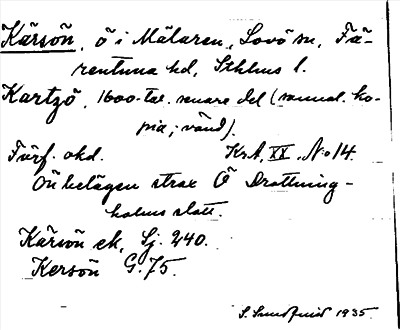 Kärsön, ö i Mälaren, Lovö sn, Fä-
rentuna hd, Sthlms l.
Kartzö, 1600-tal. senare del (samml. ko-
pia; vänd).
Förf. okd. KrA, XX, No 14.
Ön belägen strax Ö Drottning-
holms slott.
Kärsön ek, Sj. 240.
Kersön G. 75.
S. Sundquist 1935.